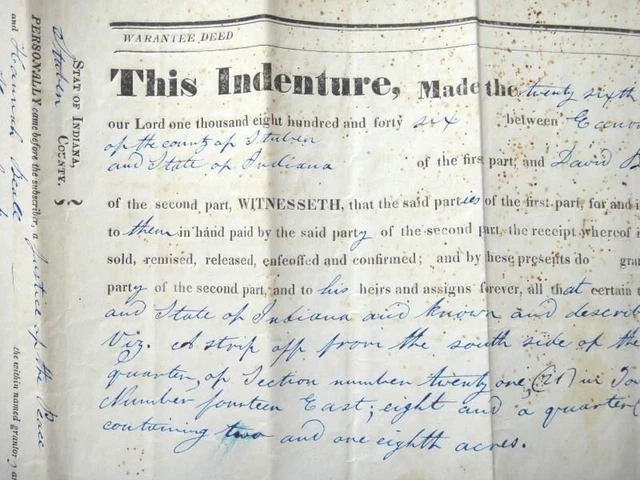 WARANTEE DEED
This Indenture, Made the twenty sixth
our Lord one thousand eight hundred and forty six between
of the county of Stuben
and State of Indiana of the first part, and David
of the second part, WITNESSETH, that the said parties of the first part, for and i
to them in hand paid by the said party of the second part, the receipt whereof i
sold, remised, released, enfeoffed and confirmed; and by these presents do gran
party of the second part, and to his heirs and assigns forever, all that certain t
and State of Indiana and known and describ
Viz. A strip off from the south side of the
quarter, of Section number twenty one, (21) in To
Number fourteen East; eight and a quarter
containing two and one eighth acres.
STAT OF INDIANA,
Stuben COUNTY.
PERSONALLY came before the subscriber, a Justice of the Peace
and Hannah Beale
the within named grantor